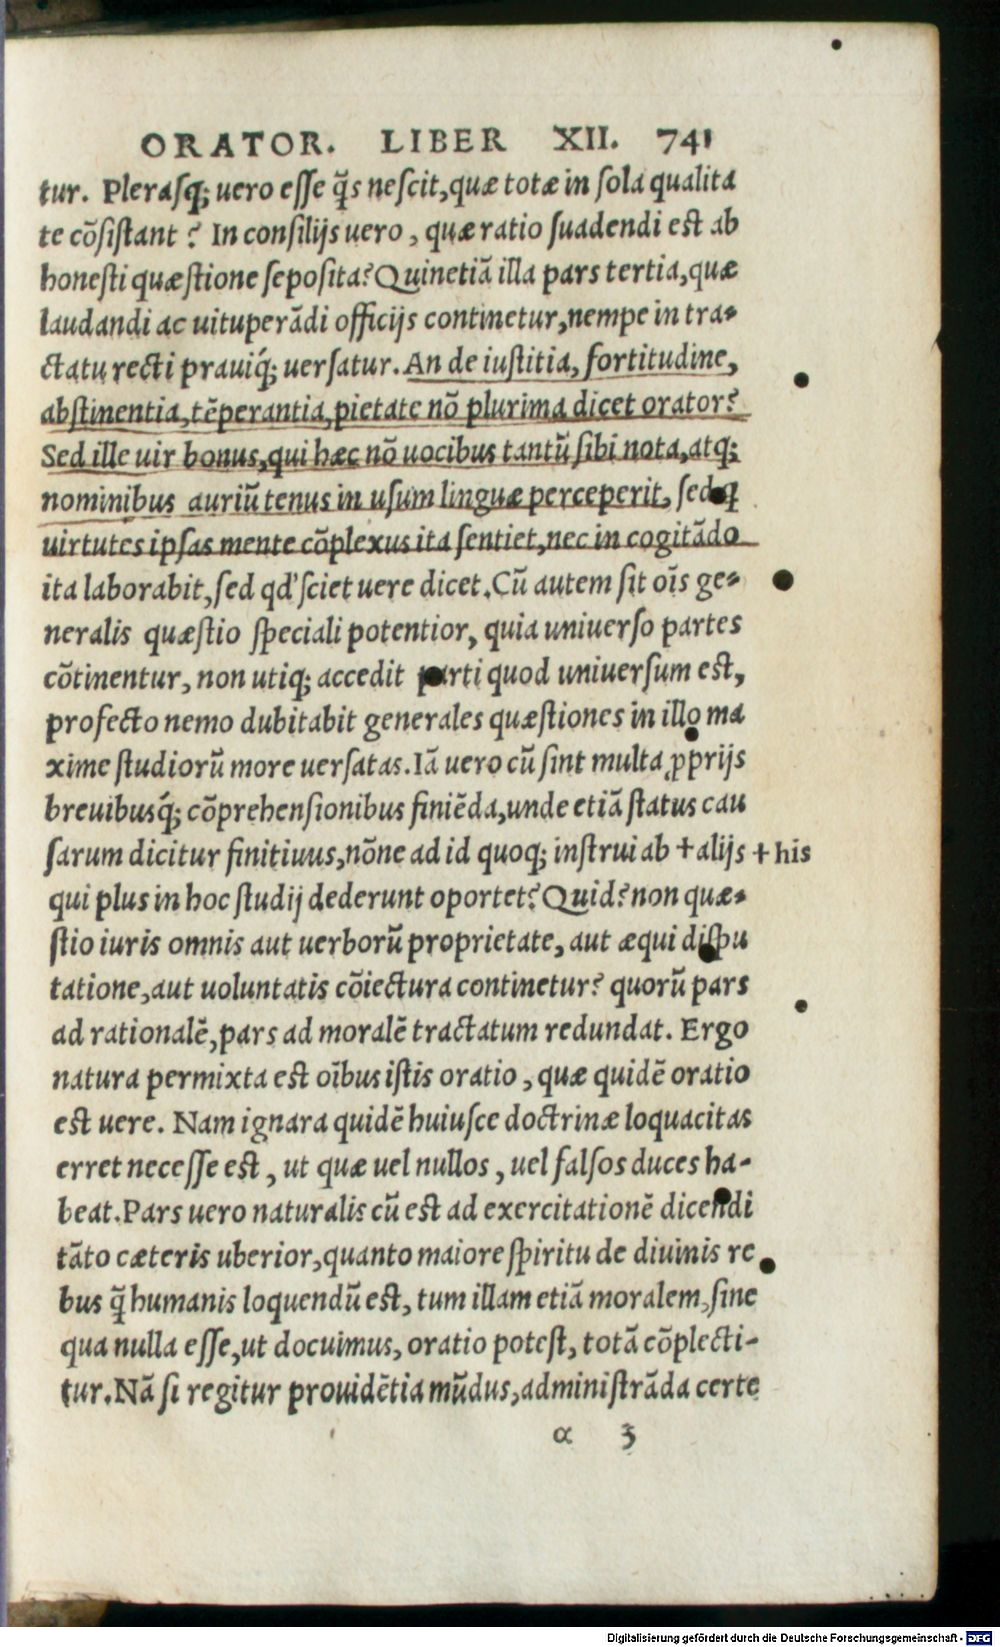 ORATOR. LIBER XII. 741
tur. Plerasq; uero esse q̃s nescit, quæ totæ in sola qualita
te cõsistant? In consilijs uero, quæ ratio suadendi est ab
honesti quæstione seposita? Quinetiã illa pars tertia, quæ
laudandi ac uituperãdi officijs continetur, nempe in tra-
ctatu recti prauiq́; uersatur. An de iustitia, fortitudine,
abstinentia, tẽperantia, pietate nõ plurima dicet orator?
Sed ille uir bonus, qui hæc nõ uocibus tantũ sibi nota, atq;
nominibus auriũ tenus in usum linguæ perceperit, sed q
uirtutes ipsas mente cõplexus ita sentiet, nec in cogitãdo
ita laborabit, sed qd' sciet uere dicet. Cũ autem sit oĩs ge-
neralis quæstio speciali potentior, quia uniuerso partes
cõtinentur, non utiq; accedit parti quod uniuersum est,
profecto nemo dubitabit generales quæstiones in illo ma
xime studiorũ more uersatas. Iã uero cũ sint multa ꝓprijs
breuibusq́; cõprehensionibus finiẽda, unde etiã status cau
sarum dicitur finitiuus, nõne ad id quoq; instrui ab +alijs +his
qui plus in hoc studij dederunt oportet? Quid? non quæ-
stio iuris omnis aut uerborũ proprietate, aut æqui dispu
tatione, aut uoluntatis cõiectura continetur? quorũ pars
ad rationalẽ, pars ad moralẽ tractatum redundat. Ergo
natura permixta est oĩbus istis oratio, quæ quidẽ oratio
est uere. Nam ignara quidẽ huiusce doctrinæ loquacitas
erret necesse est, ut quæ uel nullos, uel falsos duces ha-
beat. Pars uero naturalis cũ est ad exercitationẽ dicendi
tãto cæteris uberior, quanto maiore spiritu de diuinis re
bus q̃ humanis loquendũ est, tum illam etiã moralem, sine
qua nulla esse, ut docuimus, oratio potest, totã cõplecti-
tur. Nã si regitur prouidẽtia mũdus, administrãda certe
α 3
Digitalisierung gefördert durch die Deutsche Forschungsgemeinschaft - DFG